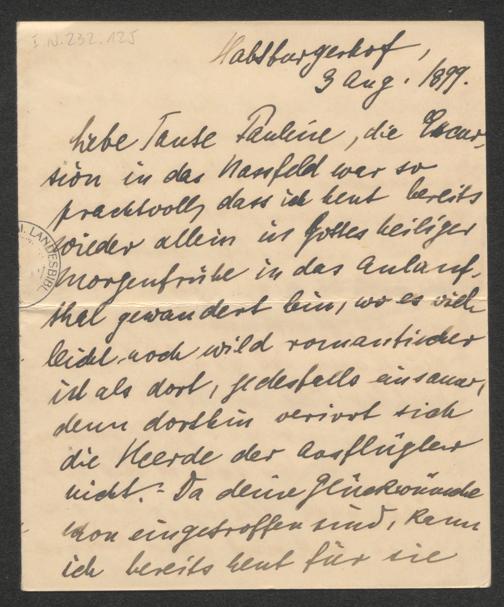 I.N. 232.125
Habsburgerhof,
3 Aug. 1899.
Liebe Tante Pauline, die Excur-
sion in das Nassfeld war so
prachtvoll, dass ich heut bereits
wieder allein in Gottes heiliger
Morgenfrühe in das Anlauf-
thal gewandert bin, wo es viel
leicht noch wild romantischer
ist als dort, jedesfalls einsamer,
denn dorthin verirrt sich
die Heerde der Ausflügler
nicht. - Da deine Glückwünsche
schon eingetroffen sind, kann
ich bereits heut für sie
LANDESBIBL